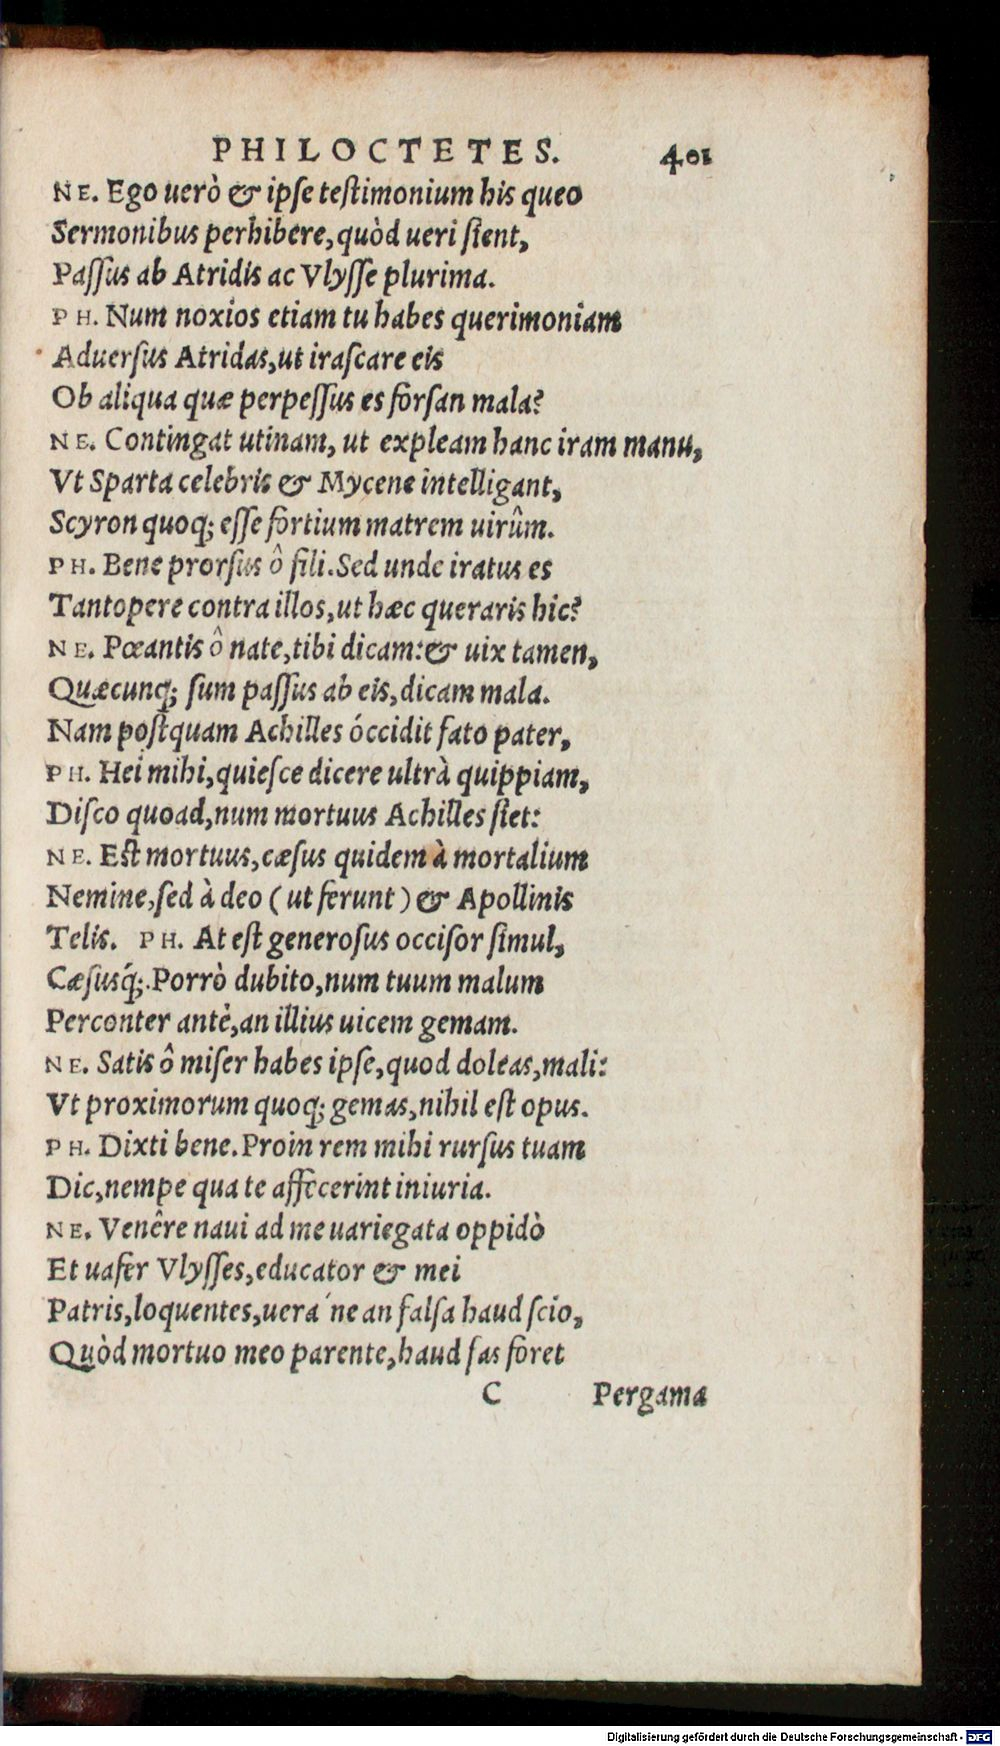 PHILOCTETES. 401
NE. Ego uerò & ipſe teſtimonium his queo
Sermonibus perhibere, quòd ueri ſient,
Paſſus ab Atridis ac Vlyſſe plurima.
PH. Num noxios etiam tu habes querimoniam
Aduerſus Atridas, ut iraſcare eis
Ob aliqua quæ perpeſſus es forſan mala?
NE. Contingat utinam, ut expleam hanc iram manu,
Vt Sparta celebris & Mycene intelligant,
Scyron quoq; eſſe fortium matrem uirûm.
PH. Bene prorſus ô fili. Sed unde iratus es
Tantopere contra illos, ut hæc queraris hic?
NE. Pœantis ô nate, tibi dicam: & uix tamen,
Quæcunq; ſum paſſus ab eis, dicam mala.
Nam poſtquam Achilles óccidit fato pater,
PH. Hei mihi, quieſce dicere ultrà quippiam,
Diſco quoad, num mortuus Achilles ſiet:
NE. Eſt mortuus, cæſus quidem à mortalium
Nemine, ſed à deo (ut ferunt) & Apollinis
Telis. PH. At eſt generoſus occiſor ſimul,
Cæſusq́;. Porrò dubito, num tuum malum
Perconter antè, an illius uicem gemam.
NE. Satis ô miſer habes ipſe, quod doleas, mali:
Vt proximorum quoq; gemas, nihil eſt opus.
PH. Dixti bene. Proin rem mihi rurſus tuam
Dic, nempe qua te affecerint iniuria.
NE. Venêre naui ad me uariegata oppidò
Et uafer Vlyſſes, educator & mei
Patris, loquentes, uera´ne an falſa haud ſcio,
Quòd mortuo meo parente, haud fas foret
C Pergama
Digitalisierung gefördert durch die Deutsche Forschungsgemeinschaft - DFG